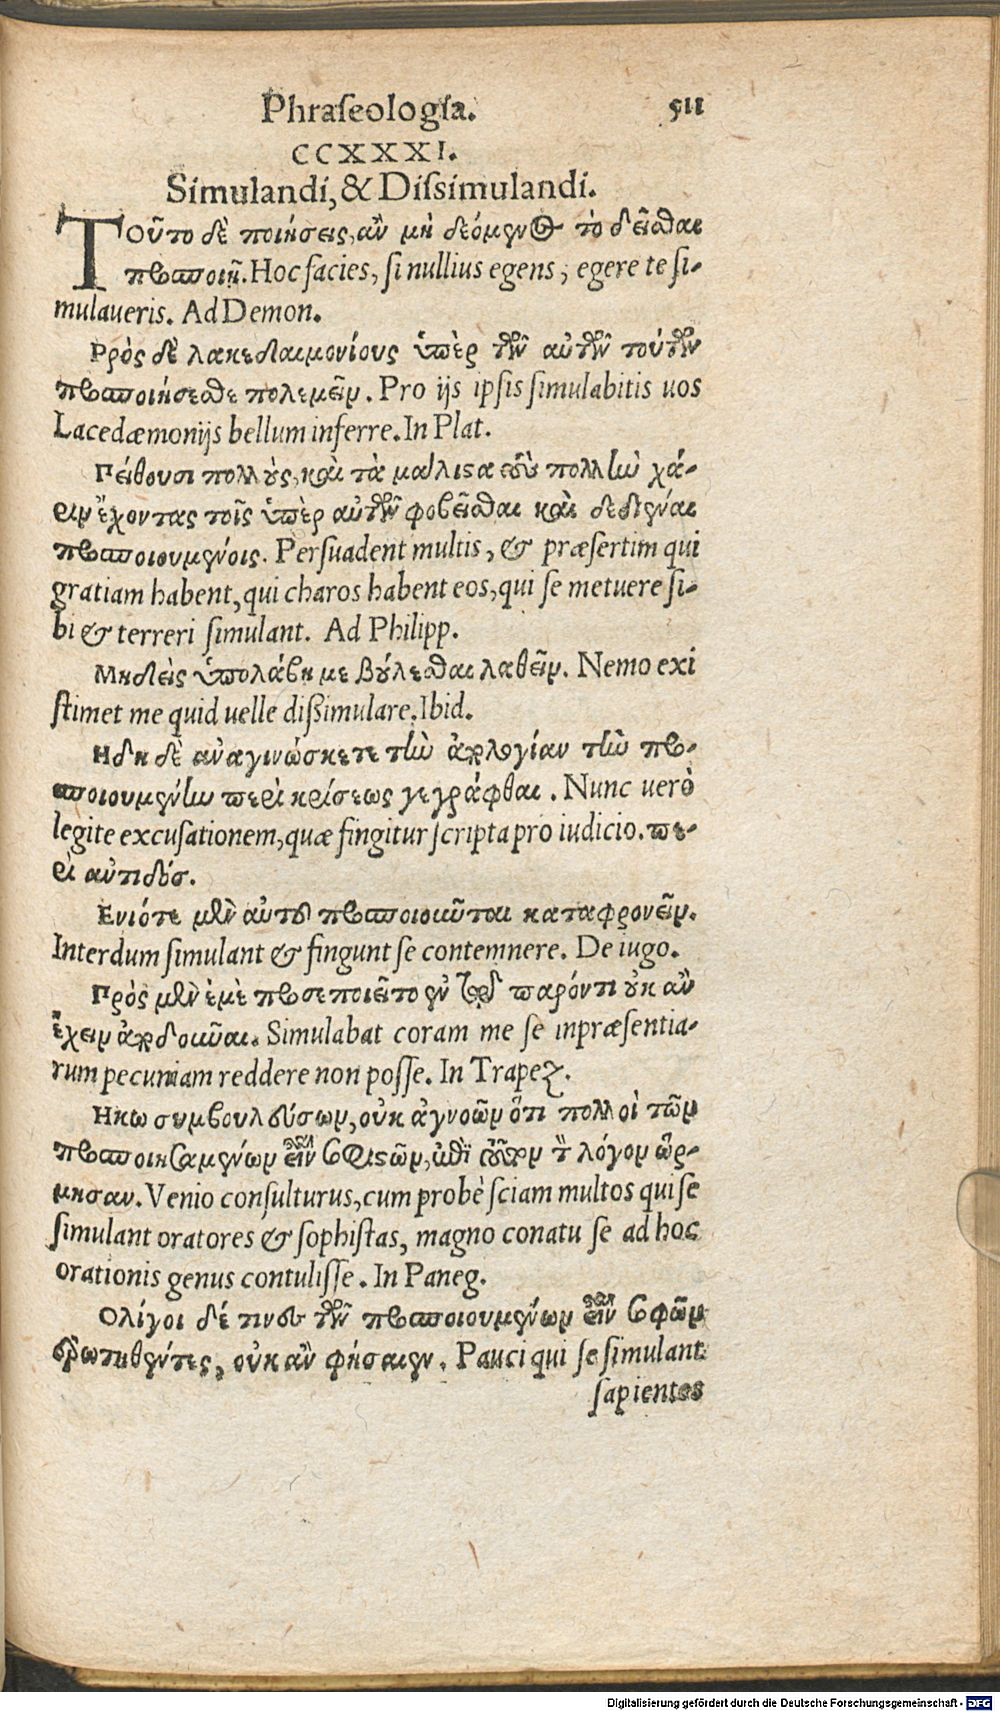 Phraſeologia. 511
CCXXXI.
Simulandi, & Diſsimulandi.
Τοῦτο δὲ ποιήσεις, ἂν μὴ δεόμενος τὸ δεῖσθαι
προσποιῇ. Hoc facies, ſi nullius egens, egere te ſi-
mulaueris. Ad Demon.
Πρὸς δὲ λακεδαιμονίους ὑπὲρ τῶν αὐτῶν τούτων
προσποιήσεσθε πολεμεῖν. Pro ijs ipſis ſimulabitis uos
Lacedæmonijs bellum inferre. In Plat.
Πείθουσι πολλοὺς, καὶ τὰ μάλιστα τοὺς πολλὴν χά-
ριν ἔχοντας τοῖς ὑπὲρ αὐτῶν φοβεῖσθαι καὶ δεδιέναι
προσποιουμένοις. Perſuadent multis, & præſertim qui
gratiam habent, qui charos habent eos, qui ſe metuere ſi-
bi & terreri ſimulant. Ad Philipp.
Μηδεὶς ὑπολάβη με βούλεσθαι λαθεῖν. Nemo exi
ſtimet me quid uelle diſsimulare. Ibid.
Ηδη δὲ ἀναγινώσκετε τὴν ἀπολογίαν τὴν προ-
σποιουμένην περὶ κρίσεως γεγράφθαι. Nunc uerò
legite excuſationem, quæ fingitur ſcripta pro iudicio. πε-
ρὶ ἀντιδόσ.
Ενιότε μὲν αὐτοῦ προσποιοιοῦνται καταφρονεῖν.
Interdum ſimulant & fingunt ſe contemnere. De iugo.
Πρὸς μὲν ἐμὲ προσεποιεῖτο ἐν τῷ παρόντι οὐκ ἂν
ἔχειν ἀποδοῦναι. Simulabat coram me ſe inpræſentia-
rum pecuniam reddere non poſſe. In Trapez.
Ηκω συμβουλεύσων, οὐκ ἀγνοῶν ὅτι πολλοὶ τῶν
προσποιησαμένων εἶναι σοφιστῶν, ἐπὶ τοῦτον τὸν λόγον ὥρ-
μησαν. Venio conſulturus, cum probè ſciam multos qui ſe
ſimulant oratores & ſophiſtas, magno conatu ſe ad hoc
orationis genus contuliſſe. In Paneg.
Ολίγοι δέ τινες τῶν προσποιουμένων εἶναι σοφῶν
ἐρωτηθέντες, οὐκ ἂν φήσαιεν. Pauci qui ſe ſimulant
ſapientes
Digitalisierung gefördert durch die Deutsche Forschungsgemeinschaft - DFG